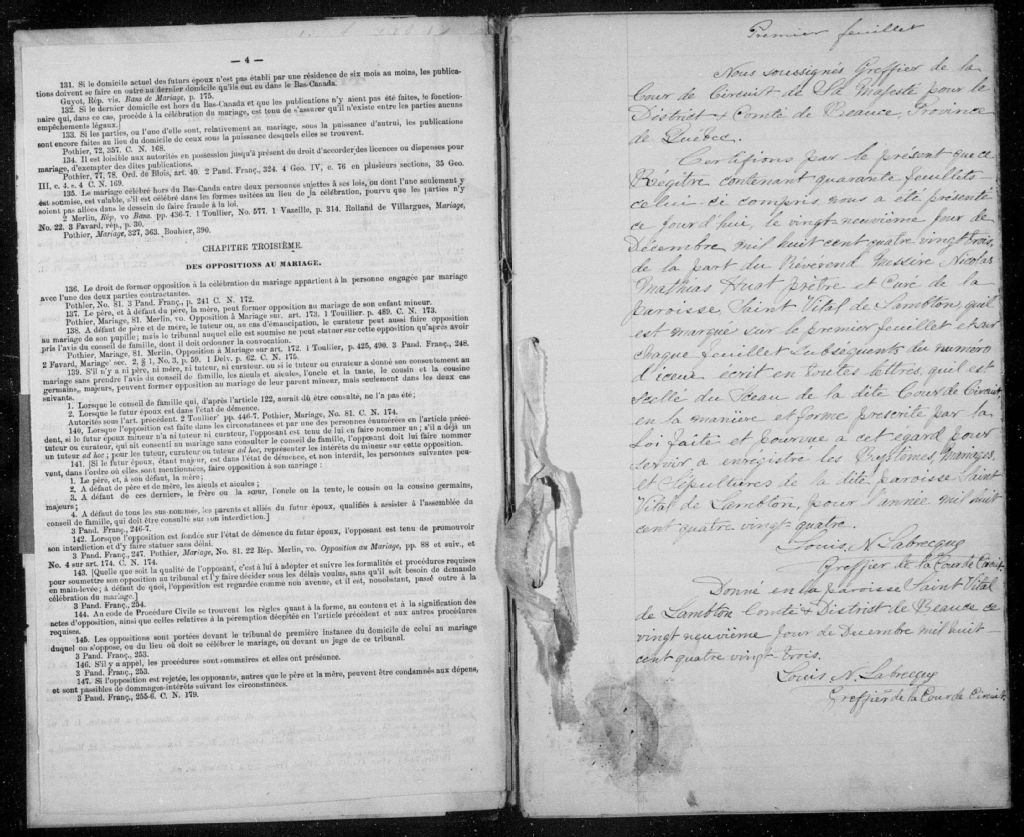 — 4 —
131. Si le domicile actuel des futurs époux n'est pas établi par une résidence de six mois au moins, les publica-
tions doivent se faire en outre au dernier domicile qu'ils ont eu dans le Bas-Canada.
Guyot, Rép. vis. Bans de Mariage, p. 175.
132. Si le dernier domicile est hors du Bas-Canada et que les publications n'y aient pas été faites, le fonction-
naire qui, dans ce cas, procède à la célébration du mariage, est tenu de s'assurer qu'il n'existe entre les parties aucuns
empêchements légaux.
133. Si les parties, ou l'une d'elle sont, relativement au mariage, sous la puissance d'autrui, les publications
sont encore faites au lieu du domicile de ceux sous la puissance desquels elles se trouvent.
Pothier, 72, 357. C. N. 168.
134. Il est loisible aux autorités en possession jusqu'à présent du droit d'accorder des licences ou dispenses pour
mariage, d'exempter des dites publications.
Pothier, 77, 78. Ord. de Blois, art. 40. 2 Pand. Franç., 324. 4 Geo. IV, c. 76 en plusieurs sections, 35 Geo.
III, c. 4. s. 4 C. N. 169.
135. Le mariage célébré hors du Bas-Canda entre deux personnes sujettes à ses lois, ou dont l'une seulement y
est soumise, est valable, s'il est célébré dans les formes usitées au lieu de la célébration, pourvu que les parties n'y
soient pas allées dans le dessein de faire fraude à la loi.
2 Merlin, Rép, vo Bans. pp. 436-7. 1 Toullier, No. 577. 1 Vazeille, p. 314. Rolland de Villargues, Mariage,
No. 22. 3 Favard, rép., p. 30.
Pothier, Mariage, 327, 363. Bouhier, 390.
CHAPITRE TROISIÈME.
DES OPPOSITIONS AU MARIAGE.
136. Le droit de former opposition à la célébration du mariage appartient à la personne engagée par mariage
avec l'une des deux parties contractantes.
Pothier, No. 81. 3 Pand. Franç., p. 241 C. N. 172.
137. Le père, et à défaut du père, la mère, peut former opposition au mariage de son enfant mineur.
Pothier, Mariage, 81. Merlin, vo. Opposition à Mariage sur. art. 173. 1 Touillier. p. 489. C. N. 173.
138. A défant de père et de mère, le tuteur ou, au cas d'émancipation, le curateur peut aussi faire opposition
au mariage de son pupille; mais le tribunal auquel elle est soumise ne peut statuer sur cette opposition qu'après avoir
pris l'avis du conseil de famille, dont il doit ordonner la convocation.
Pothier, Mariage, 81. Merlin, Opposition à Mariage sur art. 172. 1 Toullier, p. 425, 490. 3 Pand. Franç., 248.
2 Favard, Mariage' sec. 2, § 1, No. 3, p. 59. 1 Delv. p. 62. C. N. 175.
139. S'il n'y a ni père, ni mère, ni tuteur, ni curateur, ou si le tuteur ou curateur a donné son consentement au
mariage sans prendre l'avis du conseil de famille, les aïeuls et aïeules, l'oncle et la tante, le cousin et la cousine
germains, majeurs, peuvent former opposition au mariage de leur parent mineur, mais seulement dans les deux cas
suivants.
1. Lorsque le conseil de famille qui, d'après l'article 122, aurait dû être consulté, ne l'a pas été;
2. Lorsque le futur époux est dans l'état de démence.
Autorités sous l'art. précédent. 2 Toullier' pp. 446-7. Pothier, Mariage, No. 81. C. N. 174.
140. Lorsque l'opposition est faite dans les circonstances et par une des personnes énumérées en l'article précé-
dent, si le futur époux mineur n'a ni tuteur ni curateur, l'opposant est tenu de lui en faire nommer un; s'il a déjà un
tuteur ou curateur, qui ait consenti au mariage sans consulter le conseil de famille, l'opposant doit lui faire nommer
un tuteur ad hoc; pour les tuteur, curateur ou tuteur ad hoc, représenter les intérêts du mineur sur cette opposition.
141. [Si le futur époux, étant majeur, est dans l'état de démence, et non interdit, les personnes suivantes peu-
vent, dans l'ordre où elles sont mentionnées, faire opposition à son mariage :
1. Le père, et, à son défaut, la mère;
2. A défaut de père et de mère, les aïeuls et aïeules;
3. A défaut de ces derniers, le frère ou la sœur, l'oncle ou la tente, le cousin ou la cousine germains,
majeurs;
4. A défaut de tous les sus-nommés, les parents et alliés du futur époux, qualifiés à assister à l'assemblée du
conseil de famille, qui doit être consulté sur son interdiction.]
3 Pand. Franç., 246-7.
142. Lorsque l'opposition est fondée sur l'état de démence du futur époux, l'opposant est tenu de promouvoir
son interdiction et d'y faire statuer sans délai.
3 Pand. Franç., 247. Pothier, Mariage, No. 81. 22 Rép. Merlin, vo. Opposition au Mariage, pp. 88 et suiv., et
No. 4 sur art. 174. C. N. 174.
143. [Quelle que soit la qualité de l'opposant, c'est à lui à adopter et suivre les formalités et procédures requises
pour soumettre son opposition au tribunal et l'y faire décider sous les délais voulus, sans qu'il soit besoin de demande
en main-levée; à défaut de quoi, l'opposition est regardée comme non avenue, et il est, nonobstant, passé outre à la
célébration du mariage.]
3 Pand. Franç., 254.
144. Au code de Procédure Civile se trouvent les règles quant à la forme, au contenu et à la signification des
actes d'opposition, ainsi que celles relatives à la péremption décrétée en l'article précédent et aux autres procédures
requises.
145. Les oppositions sont portées devant le tribunal de première instance du domicile de celui au mariage
duquel on s'oppose, ou du lieu où doit se célébrer le mariage, ou devant un juge de ce tribunal.
3 Pand. Franç., 253.
146. S'il y a appel, les procédures sont sommaires et elles ont préséance.
3 Pand. Franç., 253.
147. Si l'opposition est rejetée, les opposants, autres que le père et la mère, peuvent être condamnés aux dépens,
et sont passibles de dommages-intérêts suivant les circonstances.
3 Pand. Franç., 255-6. C. N. 179.
Premier feuillet
Nous soussignés Greffier de la
Cour de Circuit de Sa Majesté pour le
District & Comté de Beauce, Province
de Québec.
Certifions par le présent que ce
Régitre contenant quarante feuillets
celui-ci compris nous a été présenté
ce jourd'hui, le vingt-neuvième jour de
Décembre mil huit cent quatre vingt trois,
de la part du Révérend Messire Nicolas
Mathias Huot prêtre et Curé de la
paroisse, Saint Vital de Lambton, qu'il
est marqué sur le premier feuillet et sur
chaque feuillet subséquents du numéro
d'iceux écrit en toutes lettres, qu'il est
scellé du Sceau de la dite Cour de Circuit,
en la manière et forme prescrite par la
Loi faite et pourvue à cet égard pour
servir à enregistré les Baptêmes, Mariages,
et Sépultures de la dite paroisse Saint
Vital de Lambton, pour l'année mil huit
cent quatre vingt-quatre.
Louis N. Labrecque
Greffier de la Cour de Circuit.
Donné en la paroisse Saint Vital
de Lambton Comté & District de Beauce ce
vingt neuvième jour de Décembre mil huit
cent quatre vingt-trois.
Louis N. Labrecque
Greffier de la Cour de Circuit.